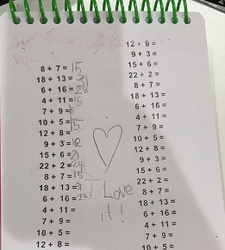 8 + 7 = 15
18 + 13 =
6 + 16 =
4 + 11 = 15
7 + 9 =
10 + 5 = 15
12 + 8 =
9 + 3 = 12
15 + 6 =
22 + 2 =
8 + 7 = 15
18 + 13 =
6 + 16 =
4 + 11 =
7 + 9 =
10 + 5 =
12 + 8 =
I Love
it!
12 + 8 =
9 + 3 =
15 + 6 =
22 + 2 =
8 + 7 =
18 + 13 =
6 + 16 =
4 + 11 =
7 + 9 =
10 + 5 =
12 + 8 =
9 + 3 =
15 + 6 =
22 + 2 =
8 + 7 =
18 + 13 =
6 + 16 =
4 + 11 =
7 + 9 =
10 + 5 =